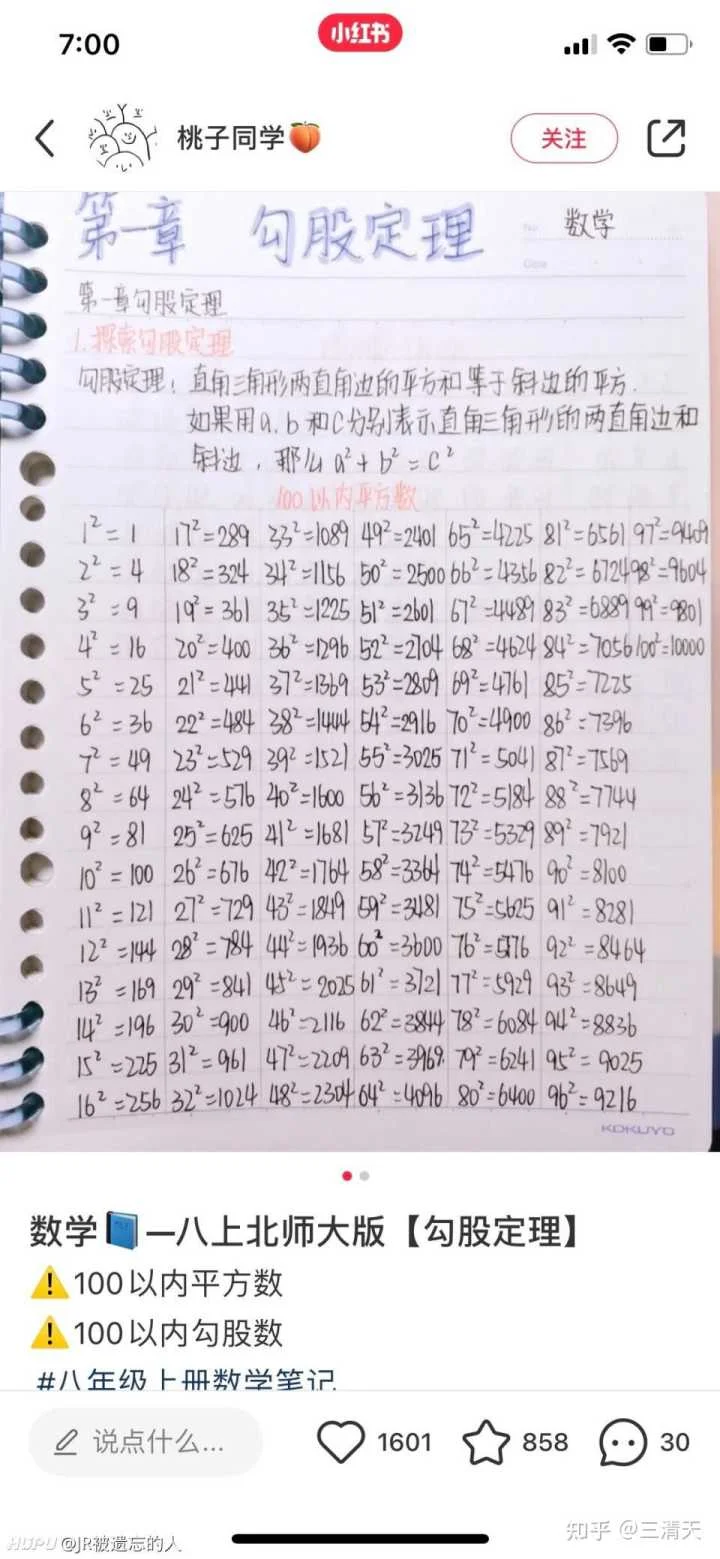 7:00
小红书
桃子同学🍑
关注
第一章 勾股定理
No.
数学
Date
第一章勾股定理
1.探索勾股定理
勾股定理：直角三角形两直角边的平方和等于斜边的平方.
如果用a.b和C分别表示直角三角形的两直角边和
斜边，那么a²+b²=c²
100以内平方数
1²=1 17²=289 33²=1089 49²=2401 65²=4225 81²=6561 97²=9409
2²=4 18²=324 34²=1156 50²=2500 66²=4356 82²=6724 98²=9604
3²=9 19²=361 35²=1225 51²=2601 67²=4489 83²=6889 99²=9801
4²=16 20²=400 36²=1296 52²=2704 68²=4624 84²=7056 100²=10000
5²=25 21²=441 37²=1369 53²=2809 69²=4761 85²=7225
6²=36 22²=484 38²=1444 54²=2916 70²=4900 86²=7396
7²=49 23²=529 39²=1521 55²=3025 71²=5041 87²=7569
8²=64 24²=576 40²=1600 56²=3136 72²=5184 88²=7744
9²=81 25²=625 41²=1681 57²=3249 73²=5329 89²=7921
10²=100 26²=676 42²=1764 58²=3364 74²=5476 90²=8100
11²=121 27²=729 43²=1849 59²=3481 75²=5625 91²=8281
12²=144 28²=784 44²=1936 60²=3600 76²=5776 92²=8464
13²=169 29²=841 45²=2025 61²=3721 77²=5929 93²=8649
14²=196 30²=900 46²=2116 62²=3844 78²=6084 94²=8836
15²=225 31²=961 47²=2209 63²=3969 79²=6241 95²=9025
16²=256 32²=1024 48²=2304 64²=4096 80²=6400 96²=9216
KOKUYO
数学📘—八上北师大版【勾股定理】
⚠️100以内平方数
⚠️100以内勾股数
#八年级上册数学笔记
说点什么...
1601
858
30
HUPU @JR被遗忘的人
知乎 @三清天